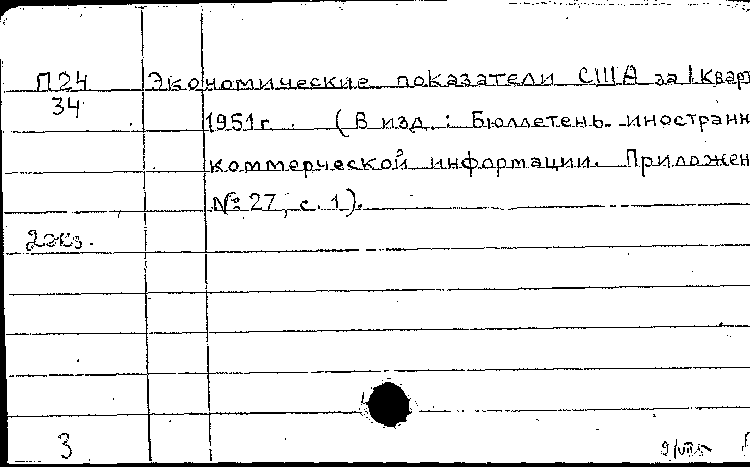 П24 Экономические показатели США за I кварт
34
1951г. (В изд.: Бюллетень иностранн
коммерческой информации. Приложен
№ 27, с. 1).
2экз.
3